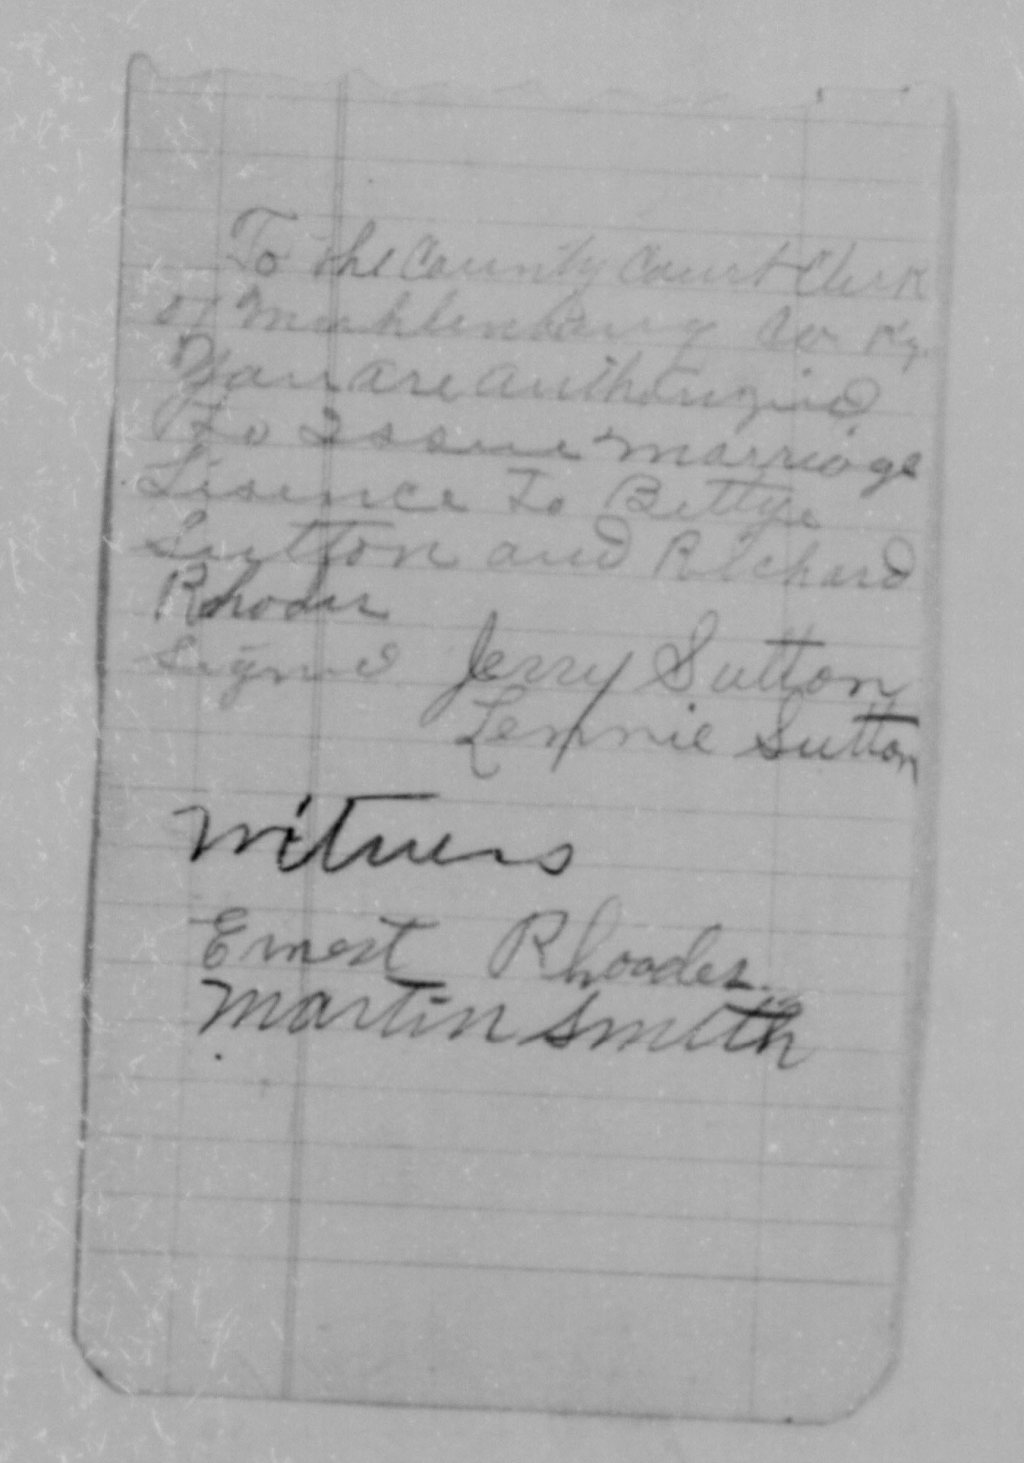 To the County Court Clerk
of Muhlenburg Co. Ky.
You are authorized
To Issue marriage
Lisence To Bettye
Sutton and Richard
Rhodes
Signed Jerry Sutton
Lennie Sutton
Witness
Ernest Rhoades.
Martin Smith